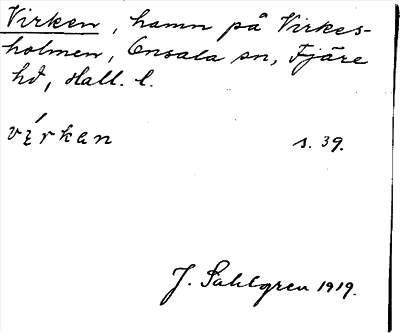 Virken, hamn på Virkes-
holmen, Onsala sn, Fjäre
hd, Hall. l.
vírkan s. 39.
J. Sahlgren 1919.